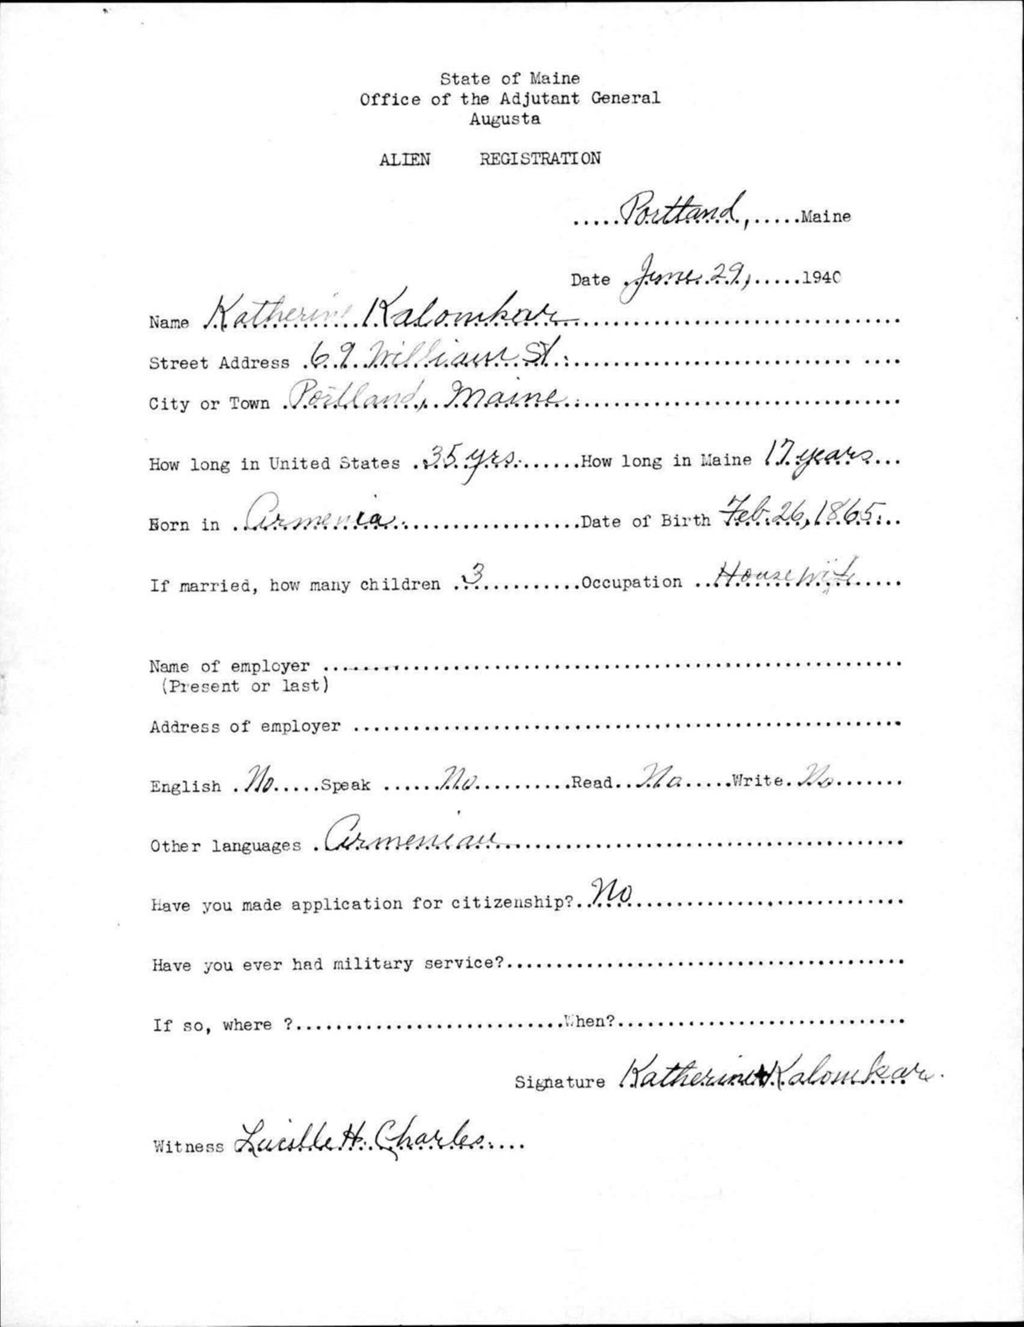 State of Maine
Office of the Adjutant General
Augusta
ALIEN REGISTRATION
.....Portland,.....Maine
Date June 29,.....1940
Name Katherine Kalomkar
Street Address 69 William St.
City or Town Portland, Maine
How long in United States 35 yrs. How long in Maine 17 years
Born in Armenia Date of Birth Feb. 26, 1865
If married, how many children 3 Occupation Housewife
Name of employer
(Present or last)
Address of employer
English No Speak No Read No Write No
Other languages Armenian
Have you made application for citizenship? No
Have you ever had military service?
If so, where ? When?
Signature Katherine Kalomkar
Witness Lucille H. Charles